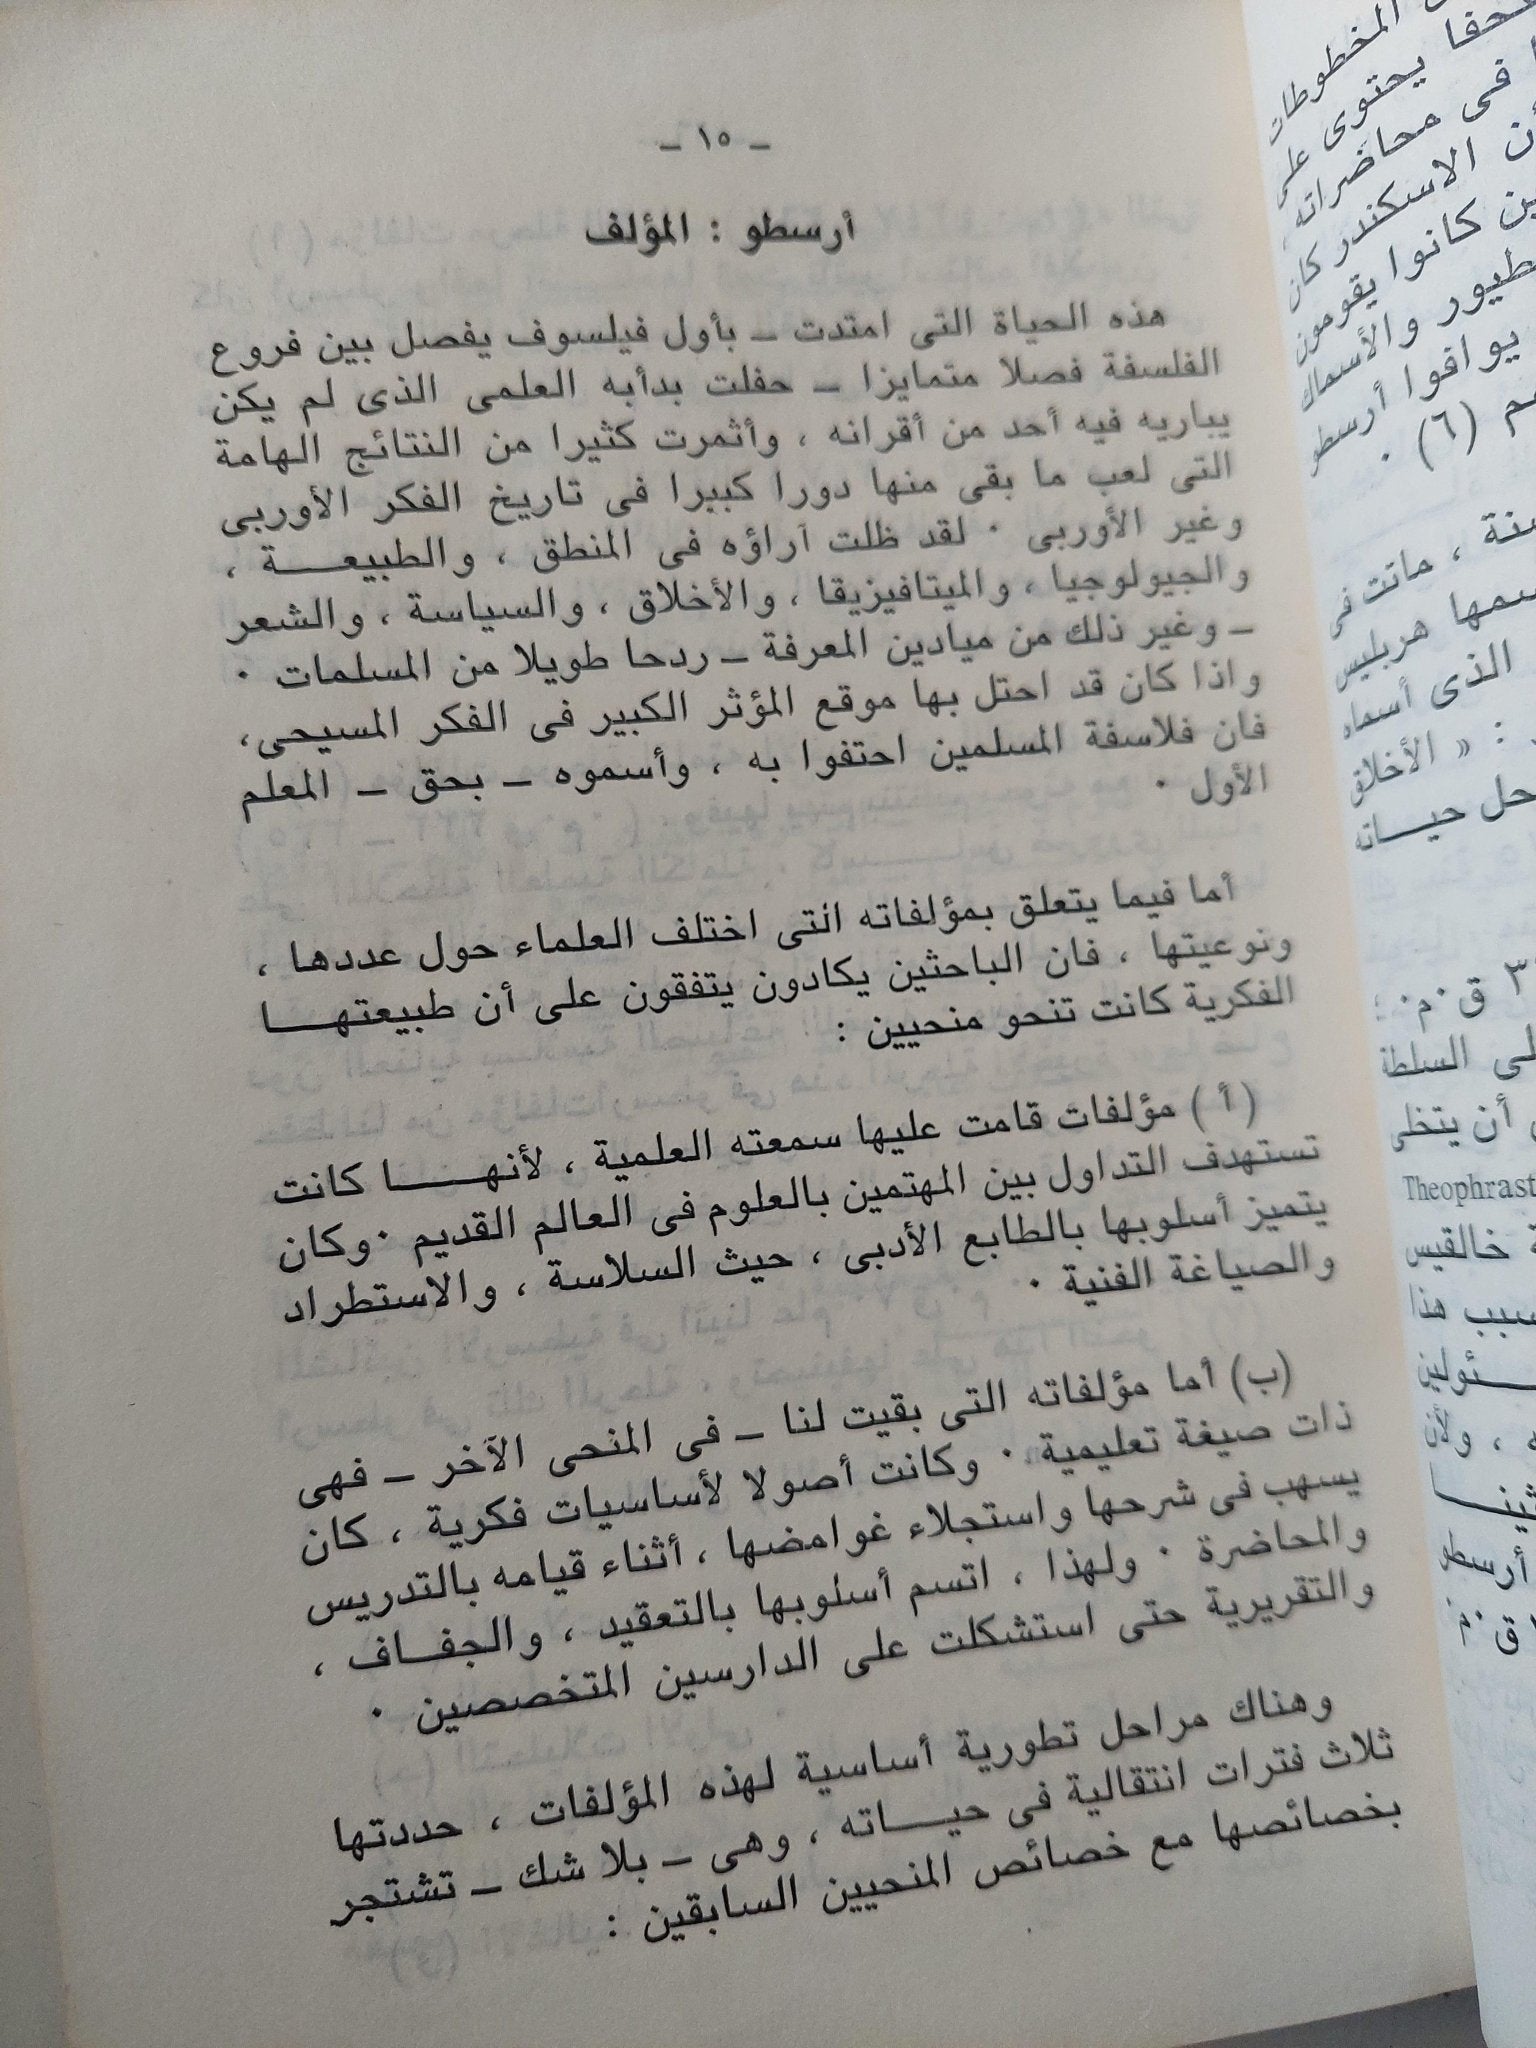 ـ ١٥ ـ
أرسطو : المؤلف
هذه الحياة التى امتدت ـ بأول فيلسوف يفصل بين فروع
الفلسفة فصلا متمايزا ـ حفلت بدأبه العلمى الذى لم يكن
يباريه فيه أحد من أقرانه ، وأثمرت كثيرا من النتائج الهامة
التى لعب ما بقى منها دورا كبيرا فى تاريخ الفكر الأوربى
وغير الأوربى ٠ لقد ظلت آراؤه فى المنطق ، والطبيعــــة ،
والجيولوجيا ، والميتافيزيقا ، والأخلاق ، والسياسة ، والشعر
ـ وغير ذلك من ميادين المعرفة ـ ردحا طويلا من المسلمات ٠
واذا كان قد احتل بها موقع المؤثر الكبير فى الفكر المسيحى،
فان فلاسفة المسلمين احتفوا به ، وأسموه ـ بحق ـ المعلم
الأول ٠
أما فيما يتعلق بمؤلفاته التى اختلف العلماء حول عددها ،
ونوعيتها ، فان الباحثين يكادون يتفقون على أن طبيعتهــــا
الفكرية كانت تنحو منحيين :
( أ ) مؤلفات قامت عليها سمعته العلمية ، لأنهــــا كانت
تستهدف التداول بين المهتمين بالعلوم فى العالم القديم ٠وكان
يتميز أسلوبها بالطابع الأدبى ، حيث السلاسة ، والاستطراد
والصياغة الفنية ٠
(ب) أما مؤلفاته التى بقيت لنا ـ فى المنحى الآخر ـ فهى
ذات صيغة تعليمية ٠ وكانت أصولا لأساسيات فكرية ، كان
يسهب فى شرحها واستجلاء غوامضها ، أثناء قيامه بالتدريس
والمحاضرة ٠ ولهذا ، اتسم أسلوبها بالتعقيد ، والجفــاف ،
والتقريرية حتى استشكلت على الدارسين المتخصصين ٠
وهناك مراحل تطورية أساسية لهذه المؤلفات ، حددتها
ثلاث فترات انتقالية فى حيــــاته ، وهى ـ بلا شك ـ تشتجر
بخصائصها مع خصائص المنحيين السابقين :
المخطوطات
يحتوى على
فى محاضراته
أن الاسكندر كان
كانوا يقومون
والأسماك
يوافقوا أرسطو
(٦) ٠
، ماتت فى
هربليس
الذى أسماه
: « الأخلاق
حيــــاته
ق٠م٠
السلطة
أن يتخلى
Theophrast
خالقيس
هذا
، ولأن
أرسطو
ق٠م٠